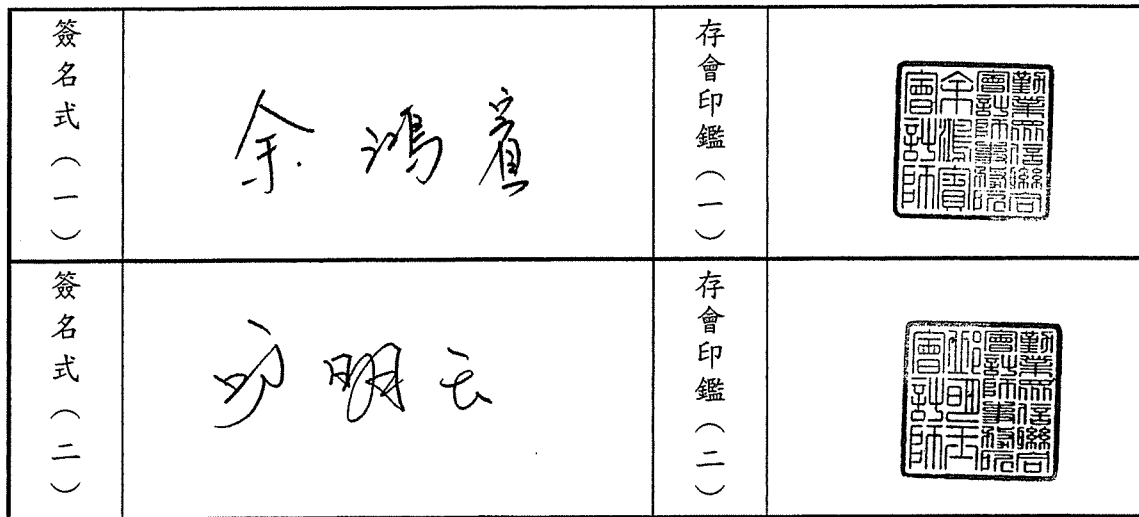 簽名式(一)
余鴻賓
存會印鑑(一)
勤業眾信聯合
會計師事務所
余鴻賓
會計師
簽名式(二)
邱明玉
存會印鑑(二)
勤業眾信聯合
會計師事務所
邱明玉
會計師